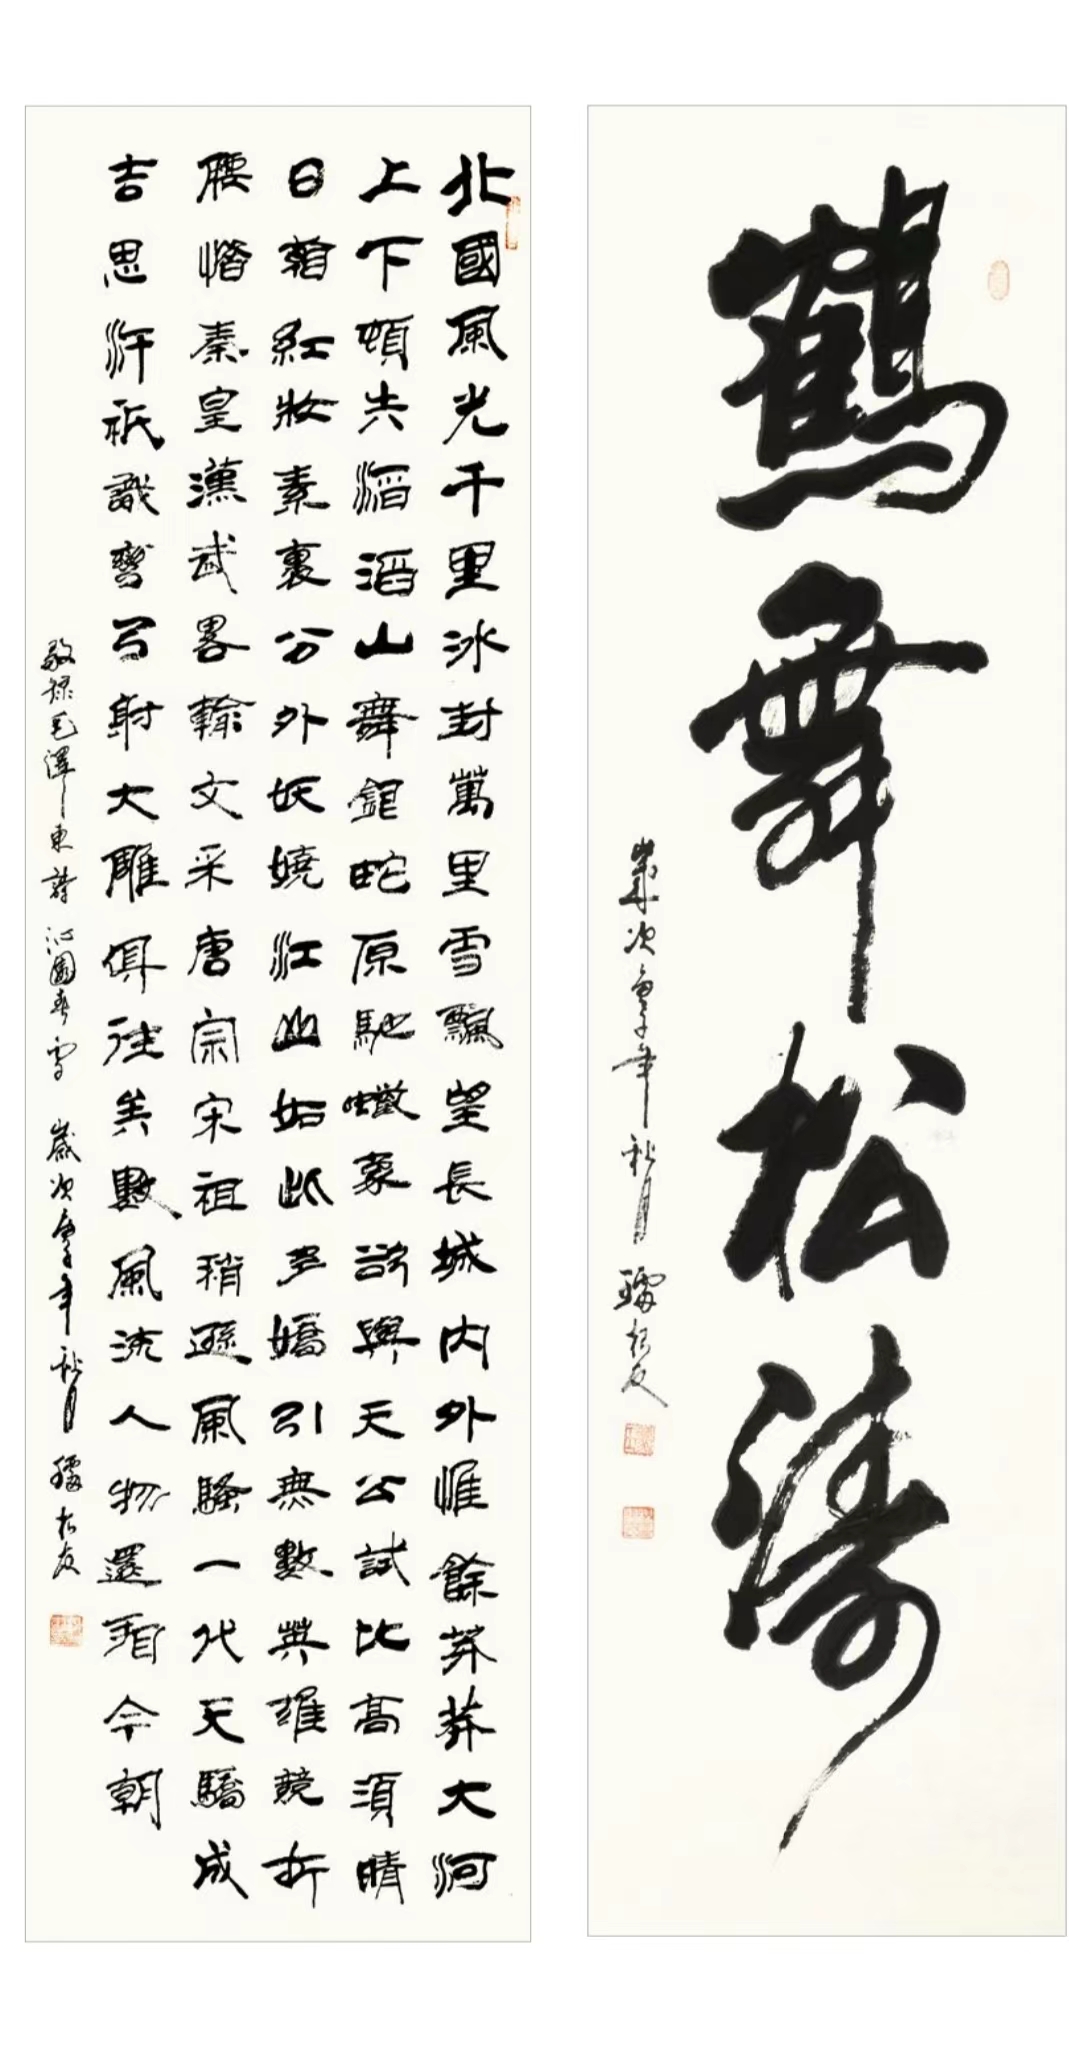 鶴舞松濤
歲次年秋月
北國風光千里冰封萬里雪飄望長城內外惟餘莽莽大河
上下頓失滔滔山舞銀蛇原馳蠟象欲與天公試比高須晴
日看紅妝素裹分外妖嬈江山如此多嬌引無數英雄競折
腰惜秦皇漢武畧輸文采唐宗宋祖稍遜風騷一代天驕成
吉思汗祇識彎弓射大雕俱往矣數風流人物還看今朝
敬錄毛澤東詩沁園春雪 歲次年秋月友